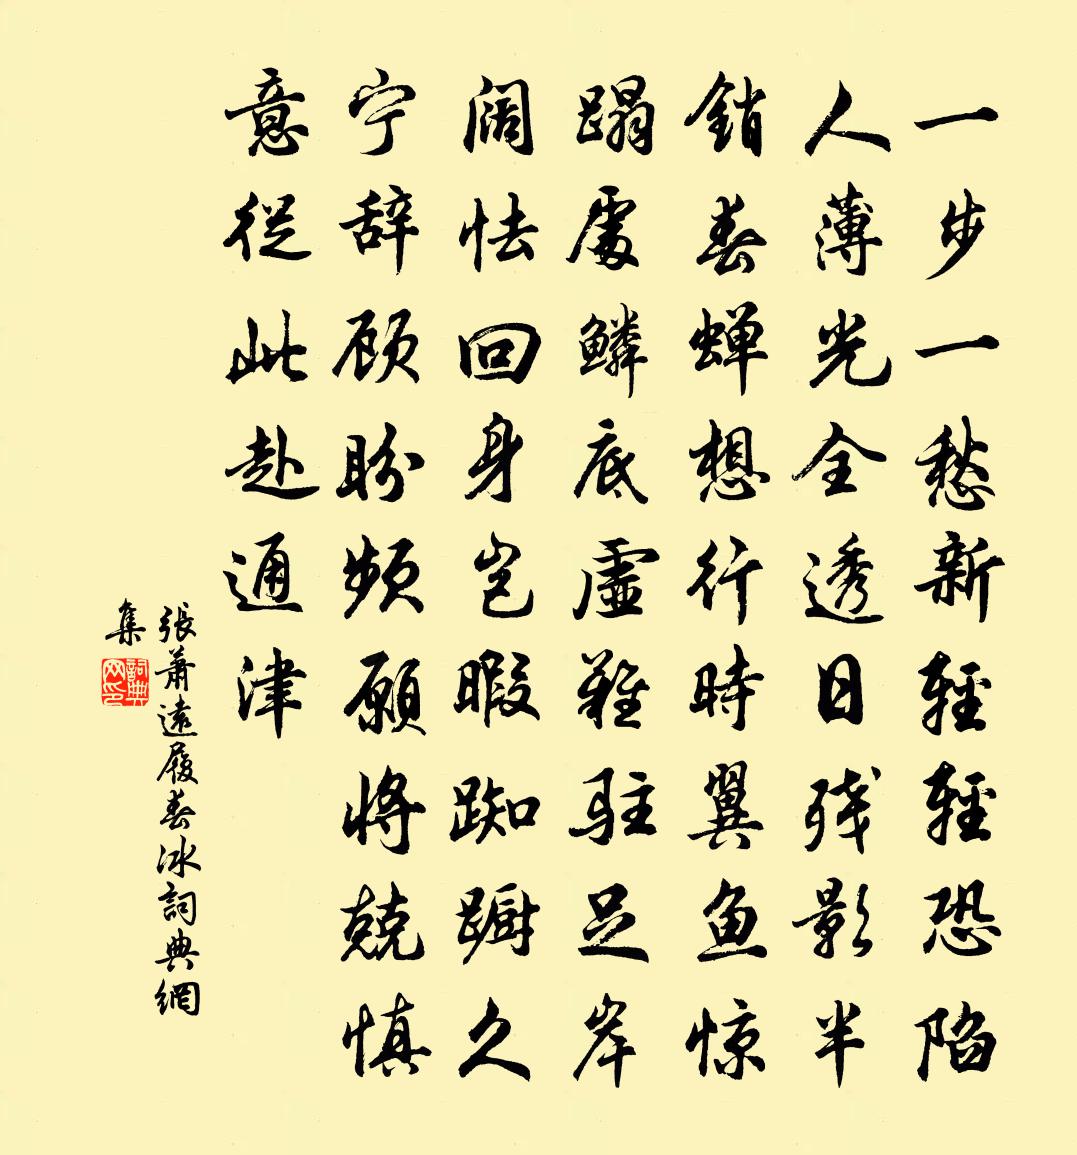 一步一愁新輕輕恐陷
人薄光全透日残影半
銷春蝉想行時翼鱼惊
蹋處鳞底虛難駐足岸
阔怯回身岂暇踟蹰久
宁辞顾盼频願将兢慎
意從此赴通津
張萧遠履春冰詞典網
集
詞典网印